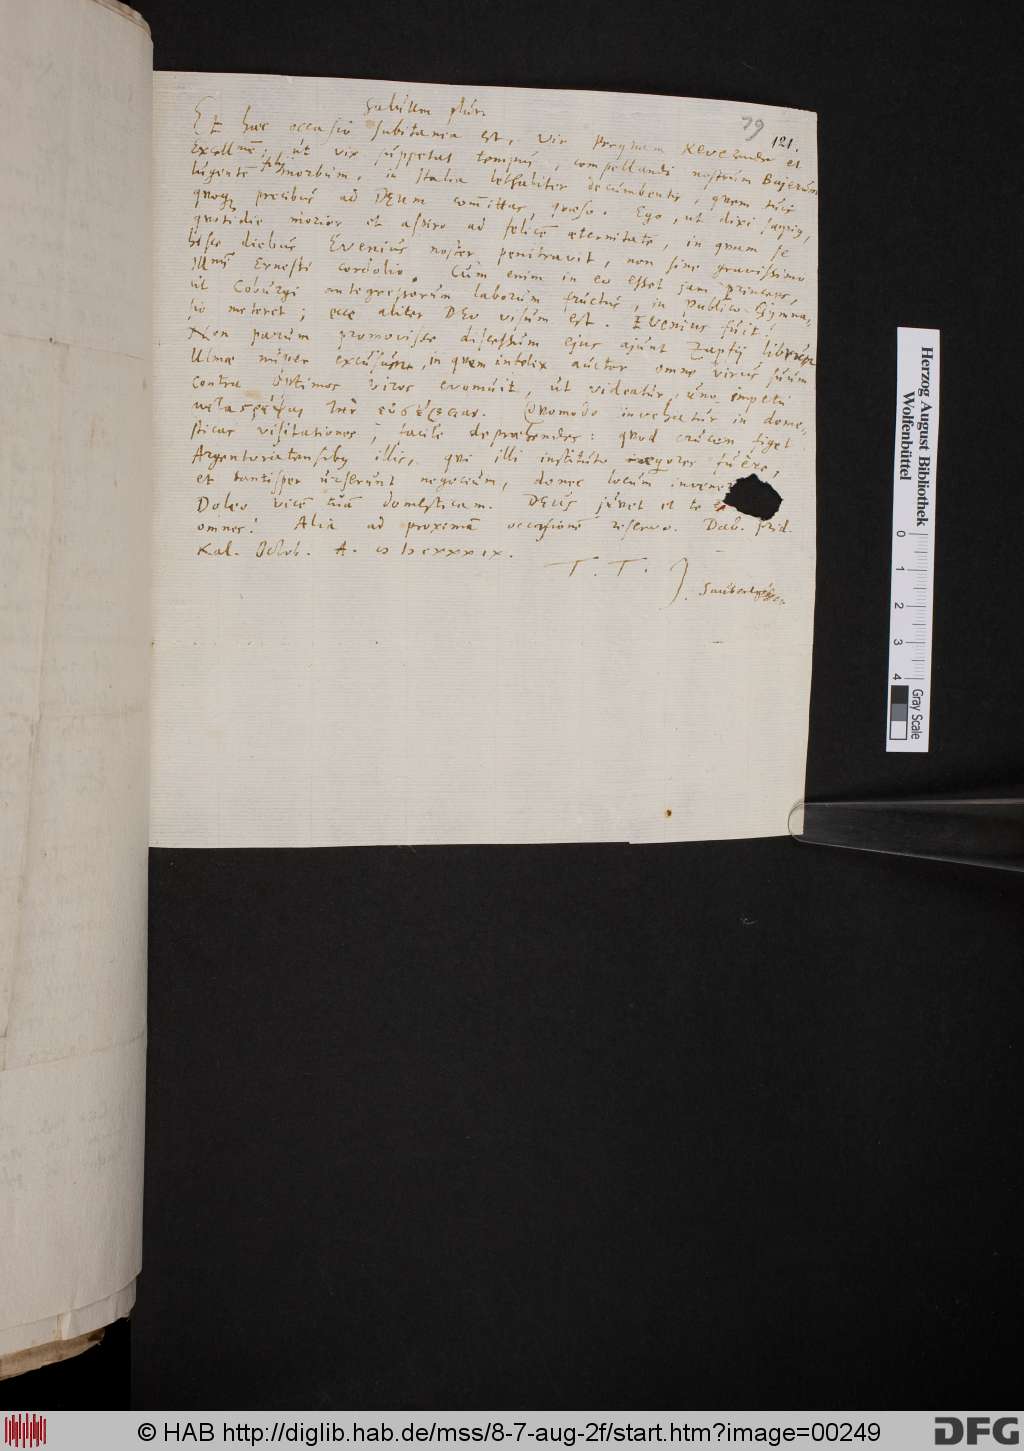 79
121.
Salutem plur.
Et haec occasio subitanea est, Vir Pregnam Reverende et
Excell.me, ut vix suppetat tempus, compellandi nostrum Bajerum
lugente filij morbum, in Italia lethaliter decumbentis, quem tuis
quoq precibus ad DEum com̄ittas, quaeso. Ego, ut dixi saepiq,
quotidie morior et aspiro ad felicē aeternitatē, in quam se
hisce diebus Evenius noster penitravit, non sine gravissimo
Ill.mi Ernesti cordolio. Cum enim in eo esset jam princeps,
ut Coburgi antegressorum laborum fructus, in publico Gymna-
sio meteret; ecce aliter DEo visum est. Evenius fuit!
Non parum promovisse discessum ejus ajunt Zapfij librum
Ulmae nuper excusum, in quem infelix auctor omne virus suum
contra optimos viros evomuit, ut videatur, uno impetu
Quomodo invehatur in dome-
sticas visitationes, facile deprehendes: quod crucem figet
Argentoratensibq illis, qui illi instituto fuere,
et tantisper urserunt negocium, donec locum
Doleo vicē tuā domesticam. DEus juvet et te
omnes! Alia ad proximā occasionē reservo. Dab. prid.
Kal. Octob. A.
T. T. J. Saubertq
Herzog August Bibliothek
Wolfenbüttel
0
1
2
3
4
Gray Scale
© HAB http://diglib.hab.de/mss/8-7-aug-2f/start.htm?image=00249
DFG